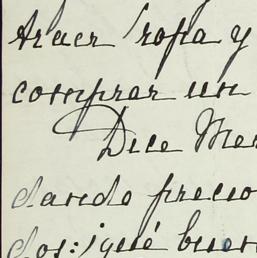 traer ropa y
comprar un
Dice Mer
dando precio
dos: ¡qué buen